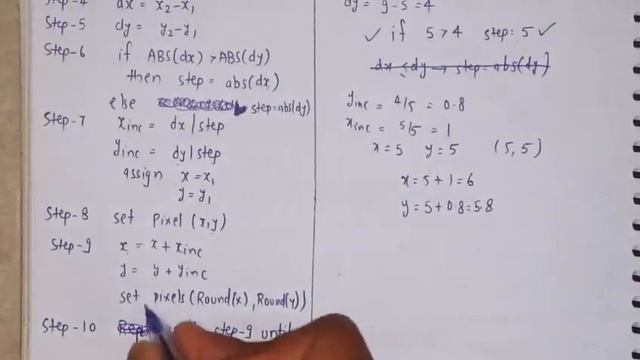 Step-4 dx = x₂-x₁
Step-5 dy = y₂-y₁
Step-6 if ABS(dx) > ABS(dy)
then step = abs(dx)
else step=abs(dy)
Step-7 xinc = dx | step
yinc = dy | step
assign x = x₁
y = y₁
Step-8 set pixel (x,y)
Step-9 x = x + xinc
y = y + yinc
set pixels (Round(x), Round(y))
Step-10 step-9 until
dy = 9-5 = 4
✓ if 5 > 4 step = 5 ✓
dx < dy → step = abs(dy)
yinc = 4/5 = 0.8
xinc = 5/5 = 1
x = 5 y = 5 (5,5)
x = 5+1 = 6
y = 5+0.8 = 5.8